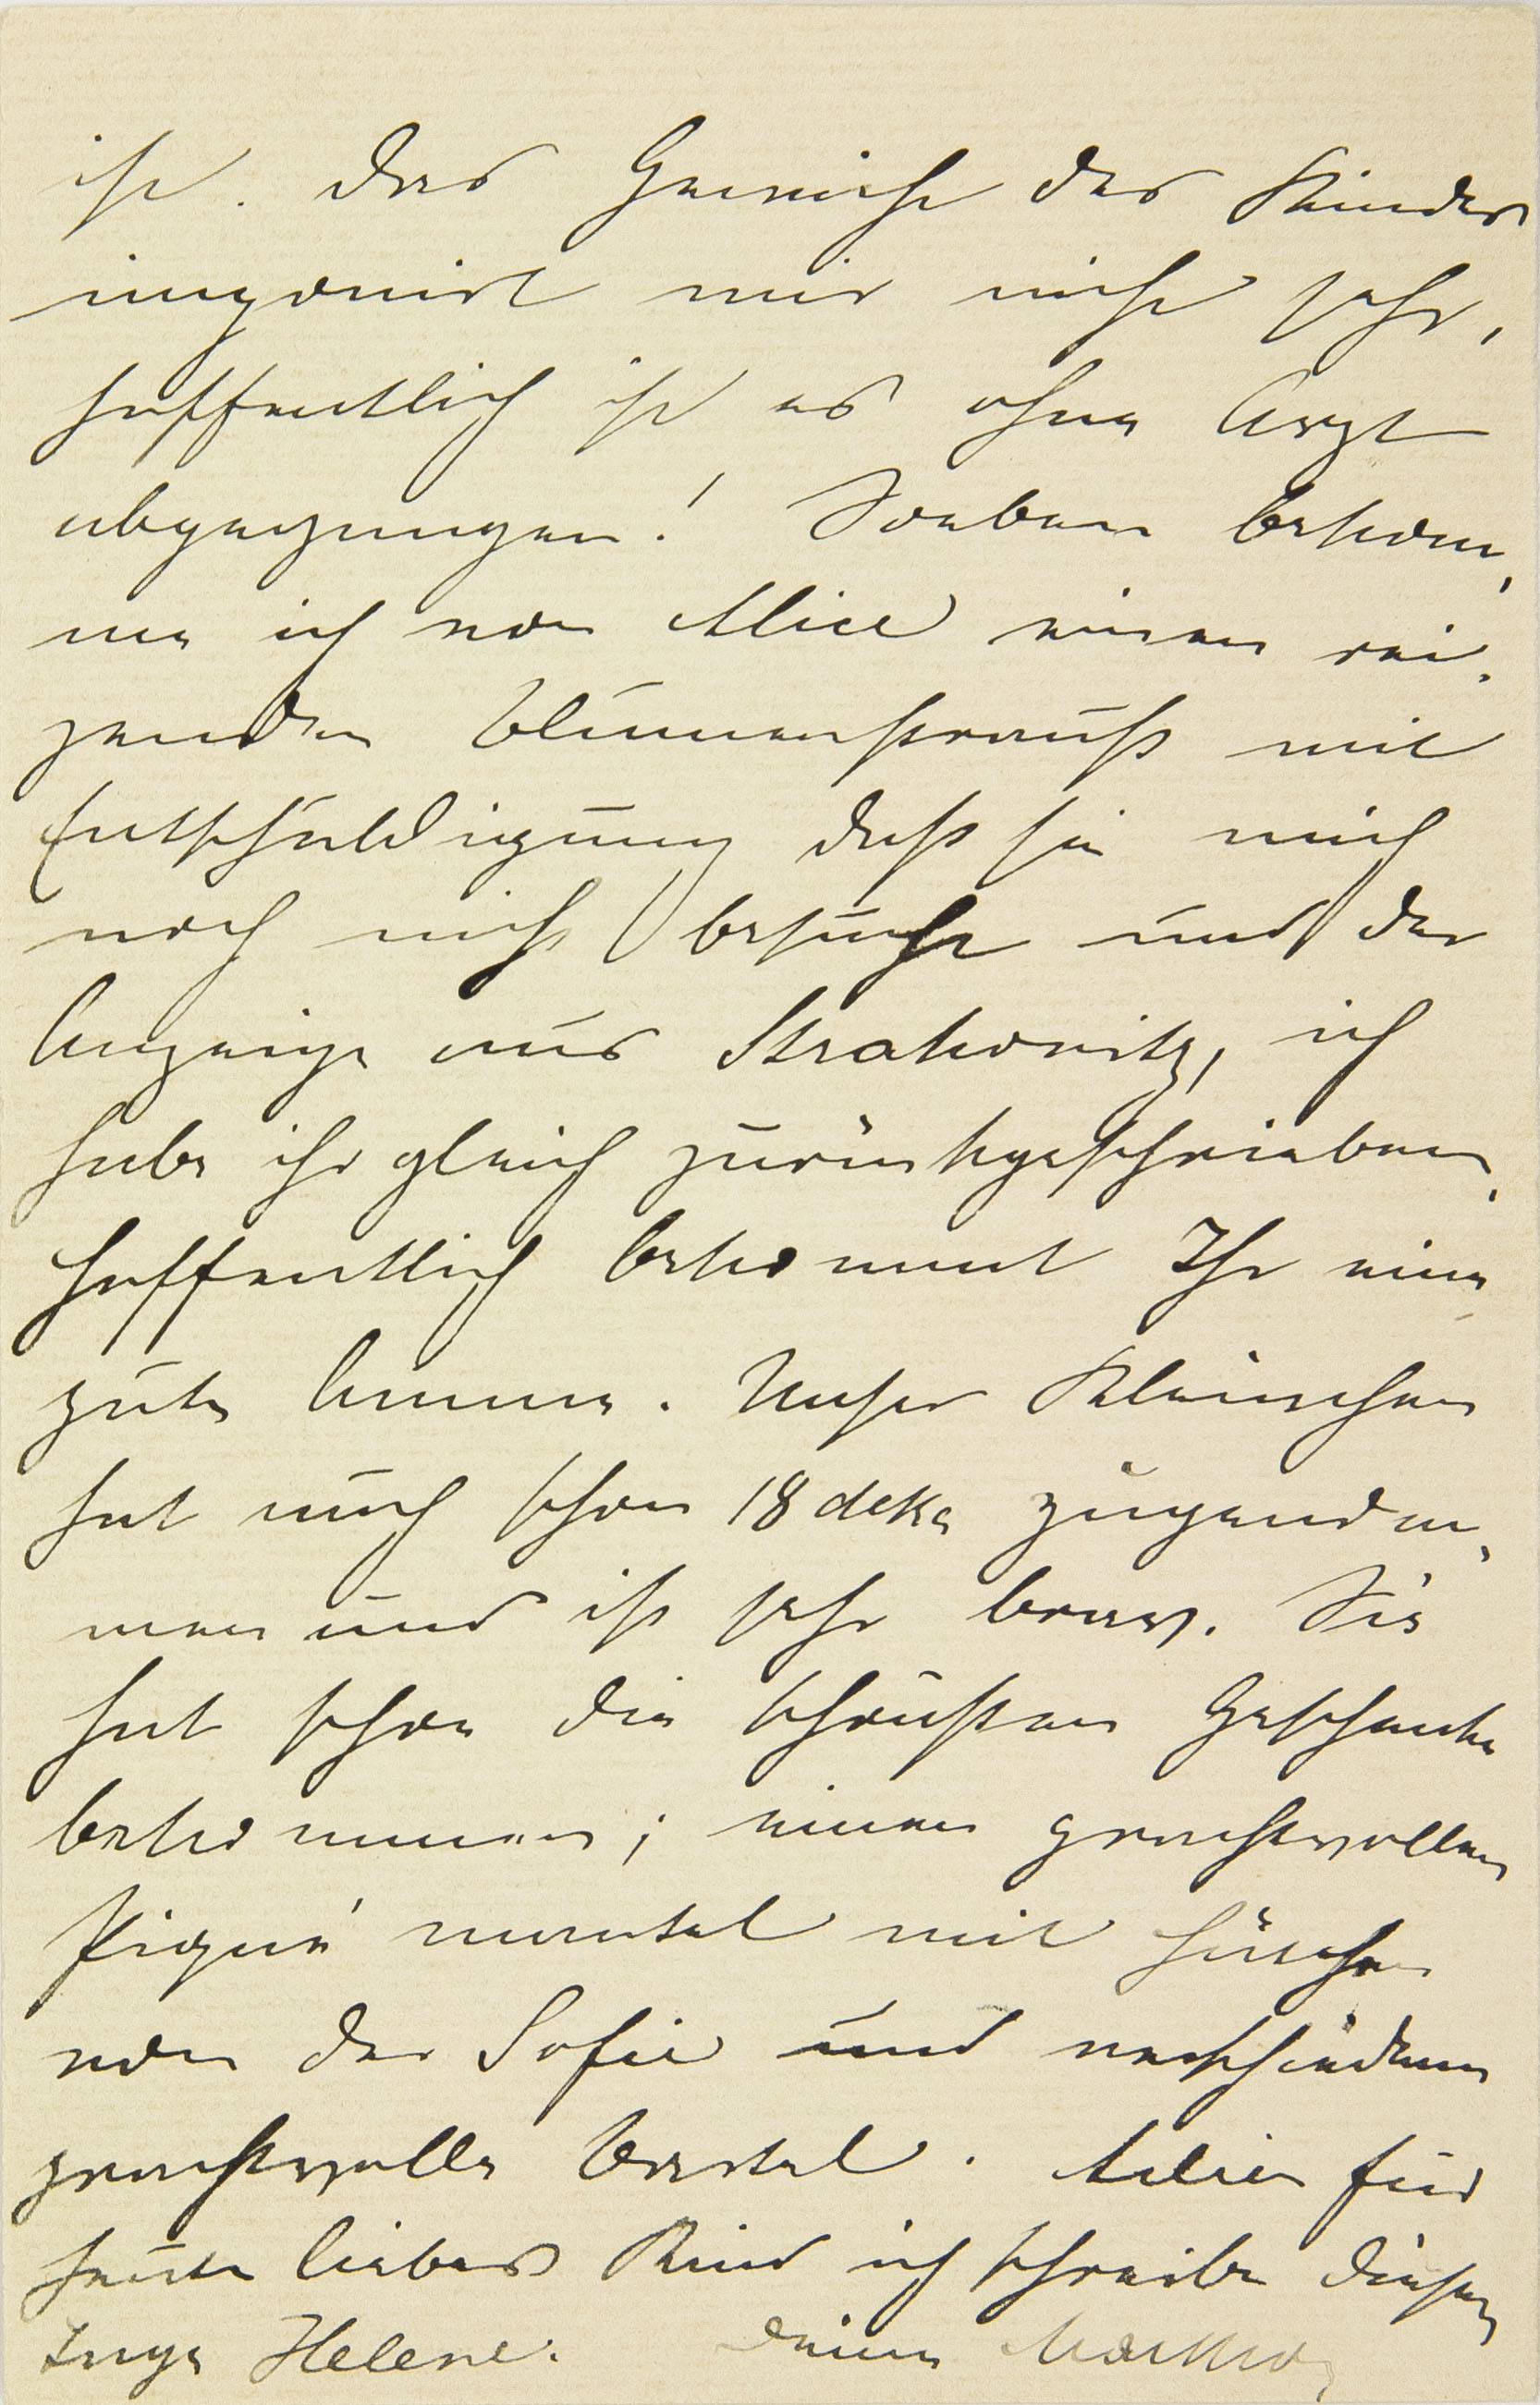 ist. Das Gewicht des Kindes
imponirt mir nicht sehr,
hoffentlich ist es ohne Arzt
abgegangen! Soeben bekom,
me ich von Alice einen rei,
zenden Blumenstrauß mit
Entschuldigung daß sie mich
noch nicht besucht und der
Anzeige aus Strakonitz, ich
habe ihr gleich zurückgeschrieben.
Hoffentlich bekommt Ihr eine
gute Amme. Unser Kleinchen
hat auch schon 18 deka zugenom,
men und ist sehr brav. Sie
hat schon die schönsten Geschenke
bekommen; einen prachtvollen
Piqué mantel mit Hütchen
von der Sofie und verschiedene
prachtvolle Barterl. Adieu für
heute liebes Kind ich schreibe dieser
Tage Helene. Deine Mutter